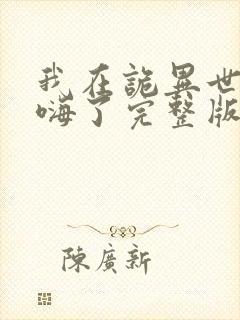 我在詭異世
嗨了完整版
陳廣新